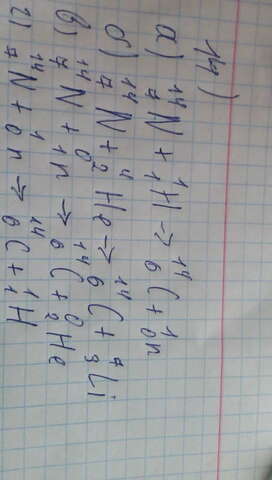 14)
а) ¹⁴₇N + ¹₁H → ¹⁴₆C + ¹₀n
б) ¹⁴₇N + ⁴₂He → ¹⁴₆C + ⁷₃Li
в) ¹⁴₇N + ⁰₁n → ¹⁴₆C + ⁰₂He
г) ¹⁴₇N + ¹₀n → ¹⁴₆C + ¹₁H